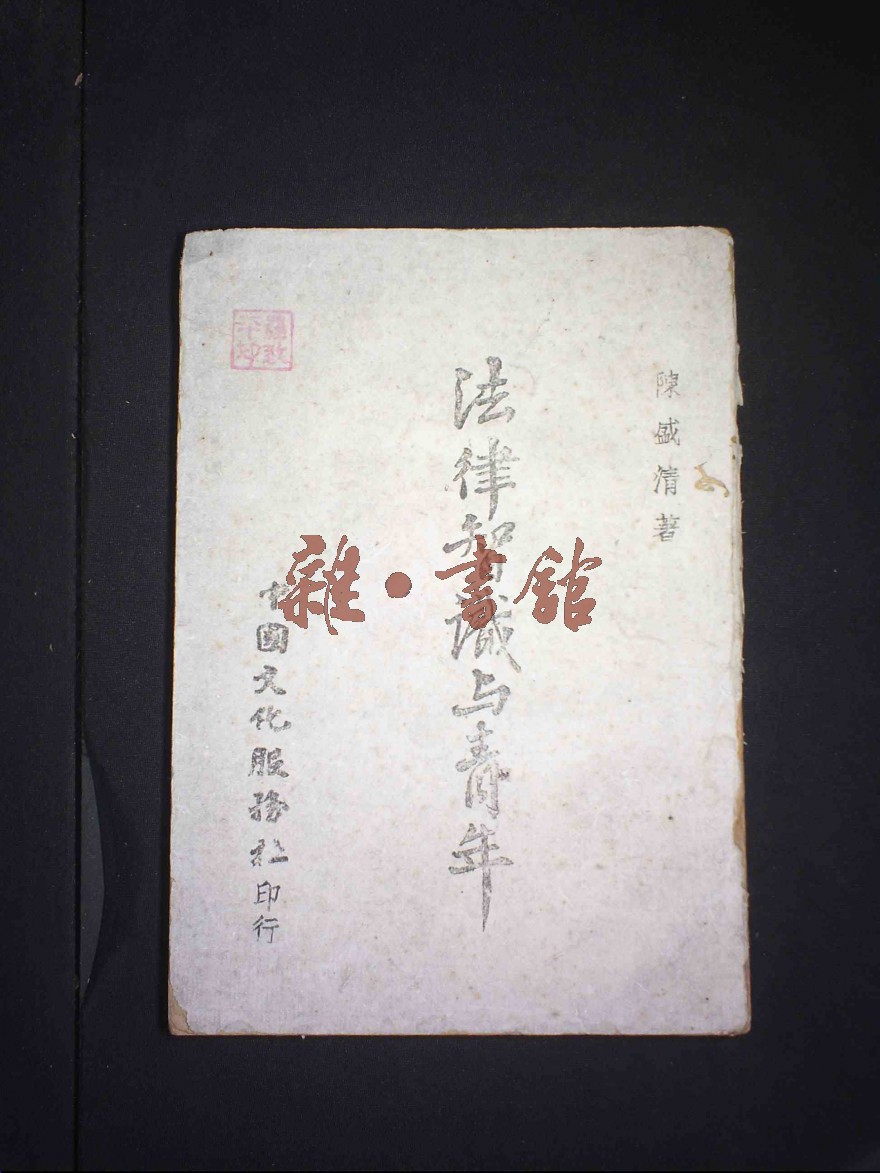 陳盛清著
法律智識与青年
中國文化服務社印行
雜·書館